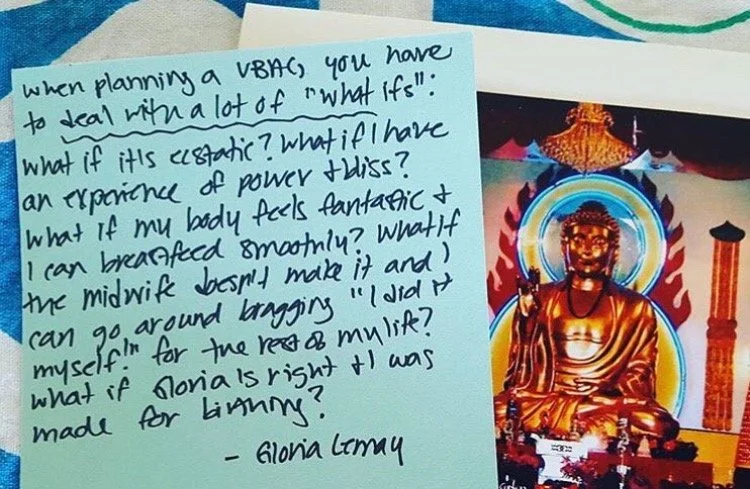 when planning a VBAC, you have
to deal with a lot of "what ifs":
what if it's ecstatic? what if I have
an experience of power + bliss?
what if my body feels fantastic +
I can breastfeed smoothly? what if
the midwife doesn't make it and I
can go around bragging "I did it
myself!" for the rest of my life?
what if Gloria is right + I was
made for birthing?
- Gloria Lemay